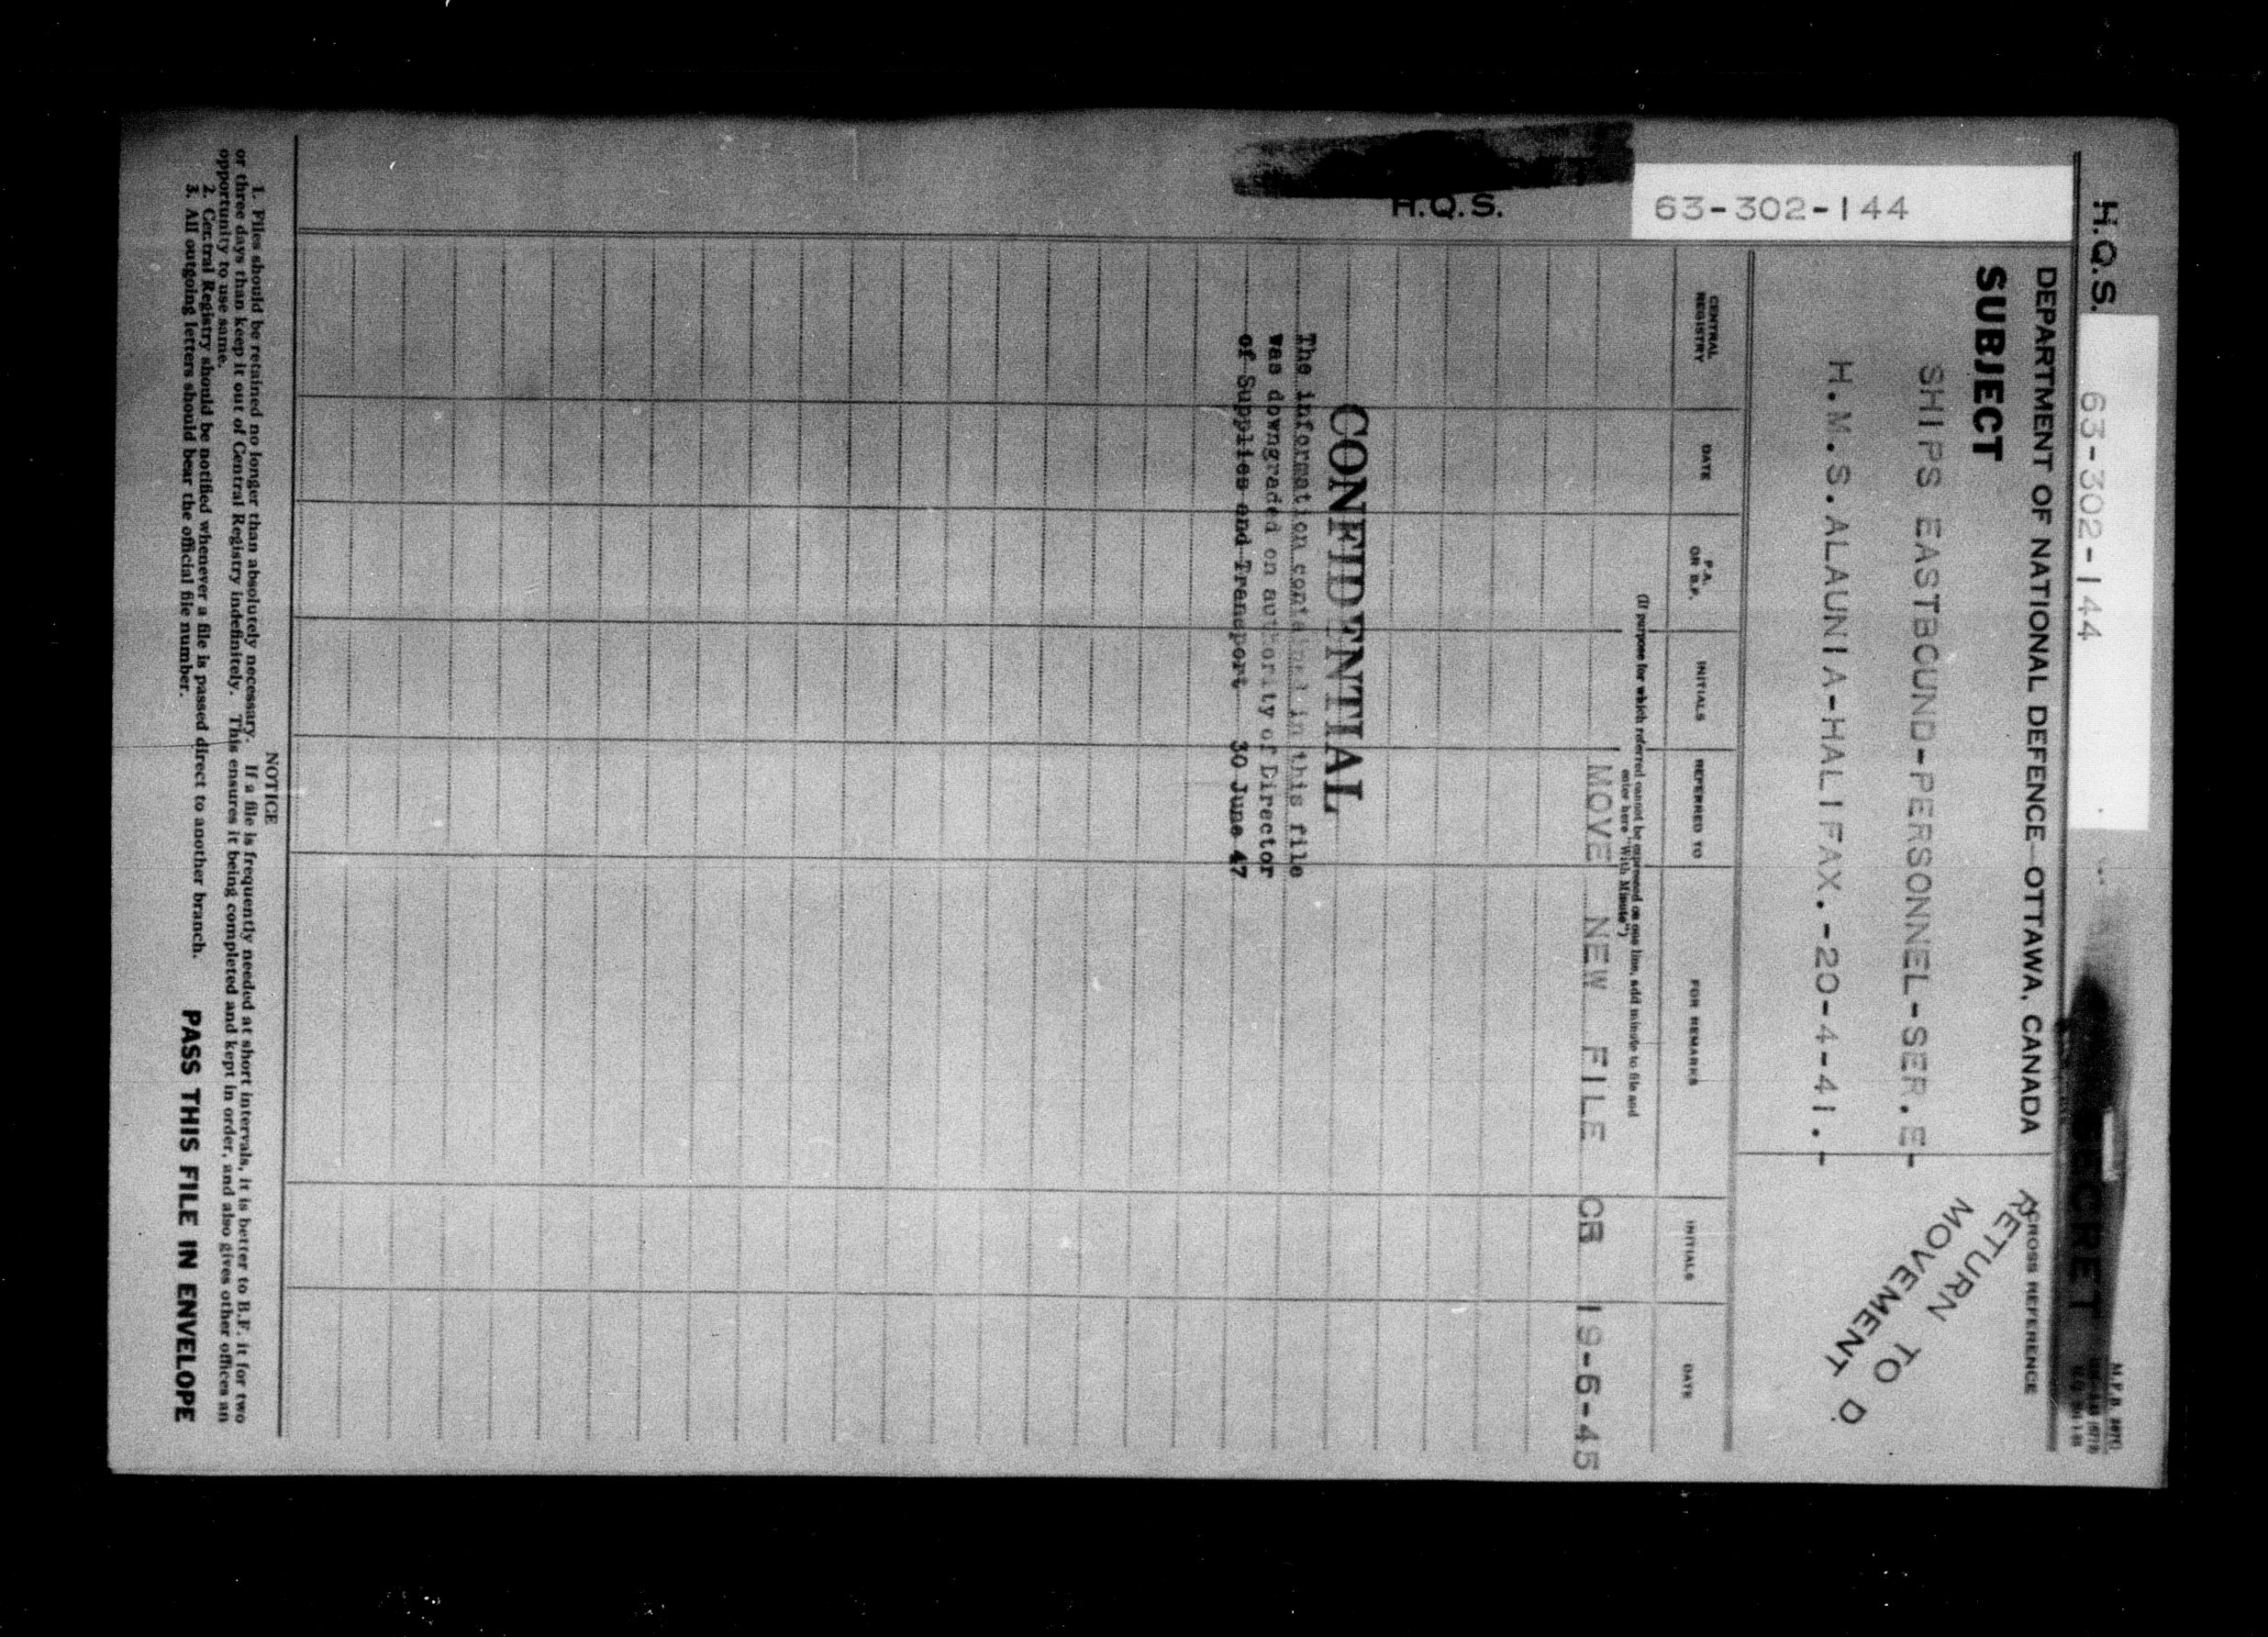 H.Q.S. 63-302-144
SECRET
DEPARTMENT OF NATIONAL DEFENCE—OTTAWA, CANADA
CROSS REFERENCE
SUBJECT
SHIPS EASTBOUND-PERSONNEL-SER.E-
H.M.S.ALAUNIA-HALIFAX.-20-4-41.-
RETURN TO
MOVEMENT D.
63-302-144
H.Q.S.
CENTRAL REGISTRY
DATE
P.A. OR B.F.
INITIALS
REFERRED TO
FOR REMARKS
INITIALS
DATE
(If purpose for which referred cannot be expressed on one line, add minute to file and
enter here "With Minute")
MOVE NEW FILE CB 19-6-45
CONFIDENTIAL
The information contained in this file
was downgraded on authority of Director
of Supplies and Transport 30 June 47
NOTICE
1. Files should be retained no longer than absolutely necessary. If a file is frequently needed at short intervals, it is better to B.F. it for two
or three days than keep it out of Central Registry indefinitely. This ensures it being completed and kept in order, and also gives other offices an
opportunity to use same.
2. Central Registry should be notified whenever a file is passed direct to another branch.
3. All outgoing letters should bear the official file number.
PASS THIS FILE IN ENVELOPE